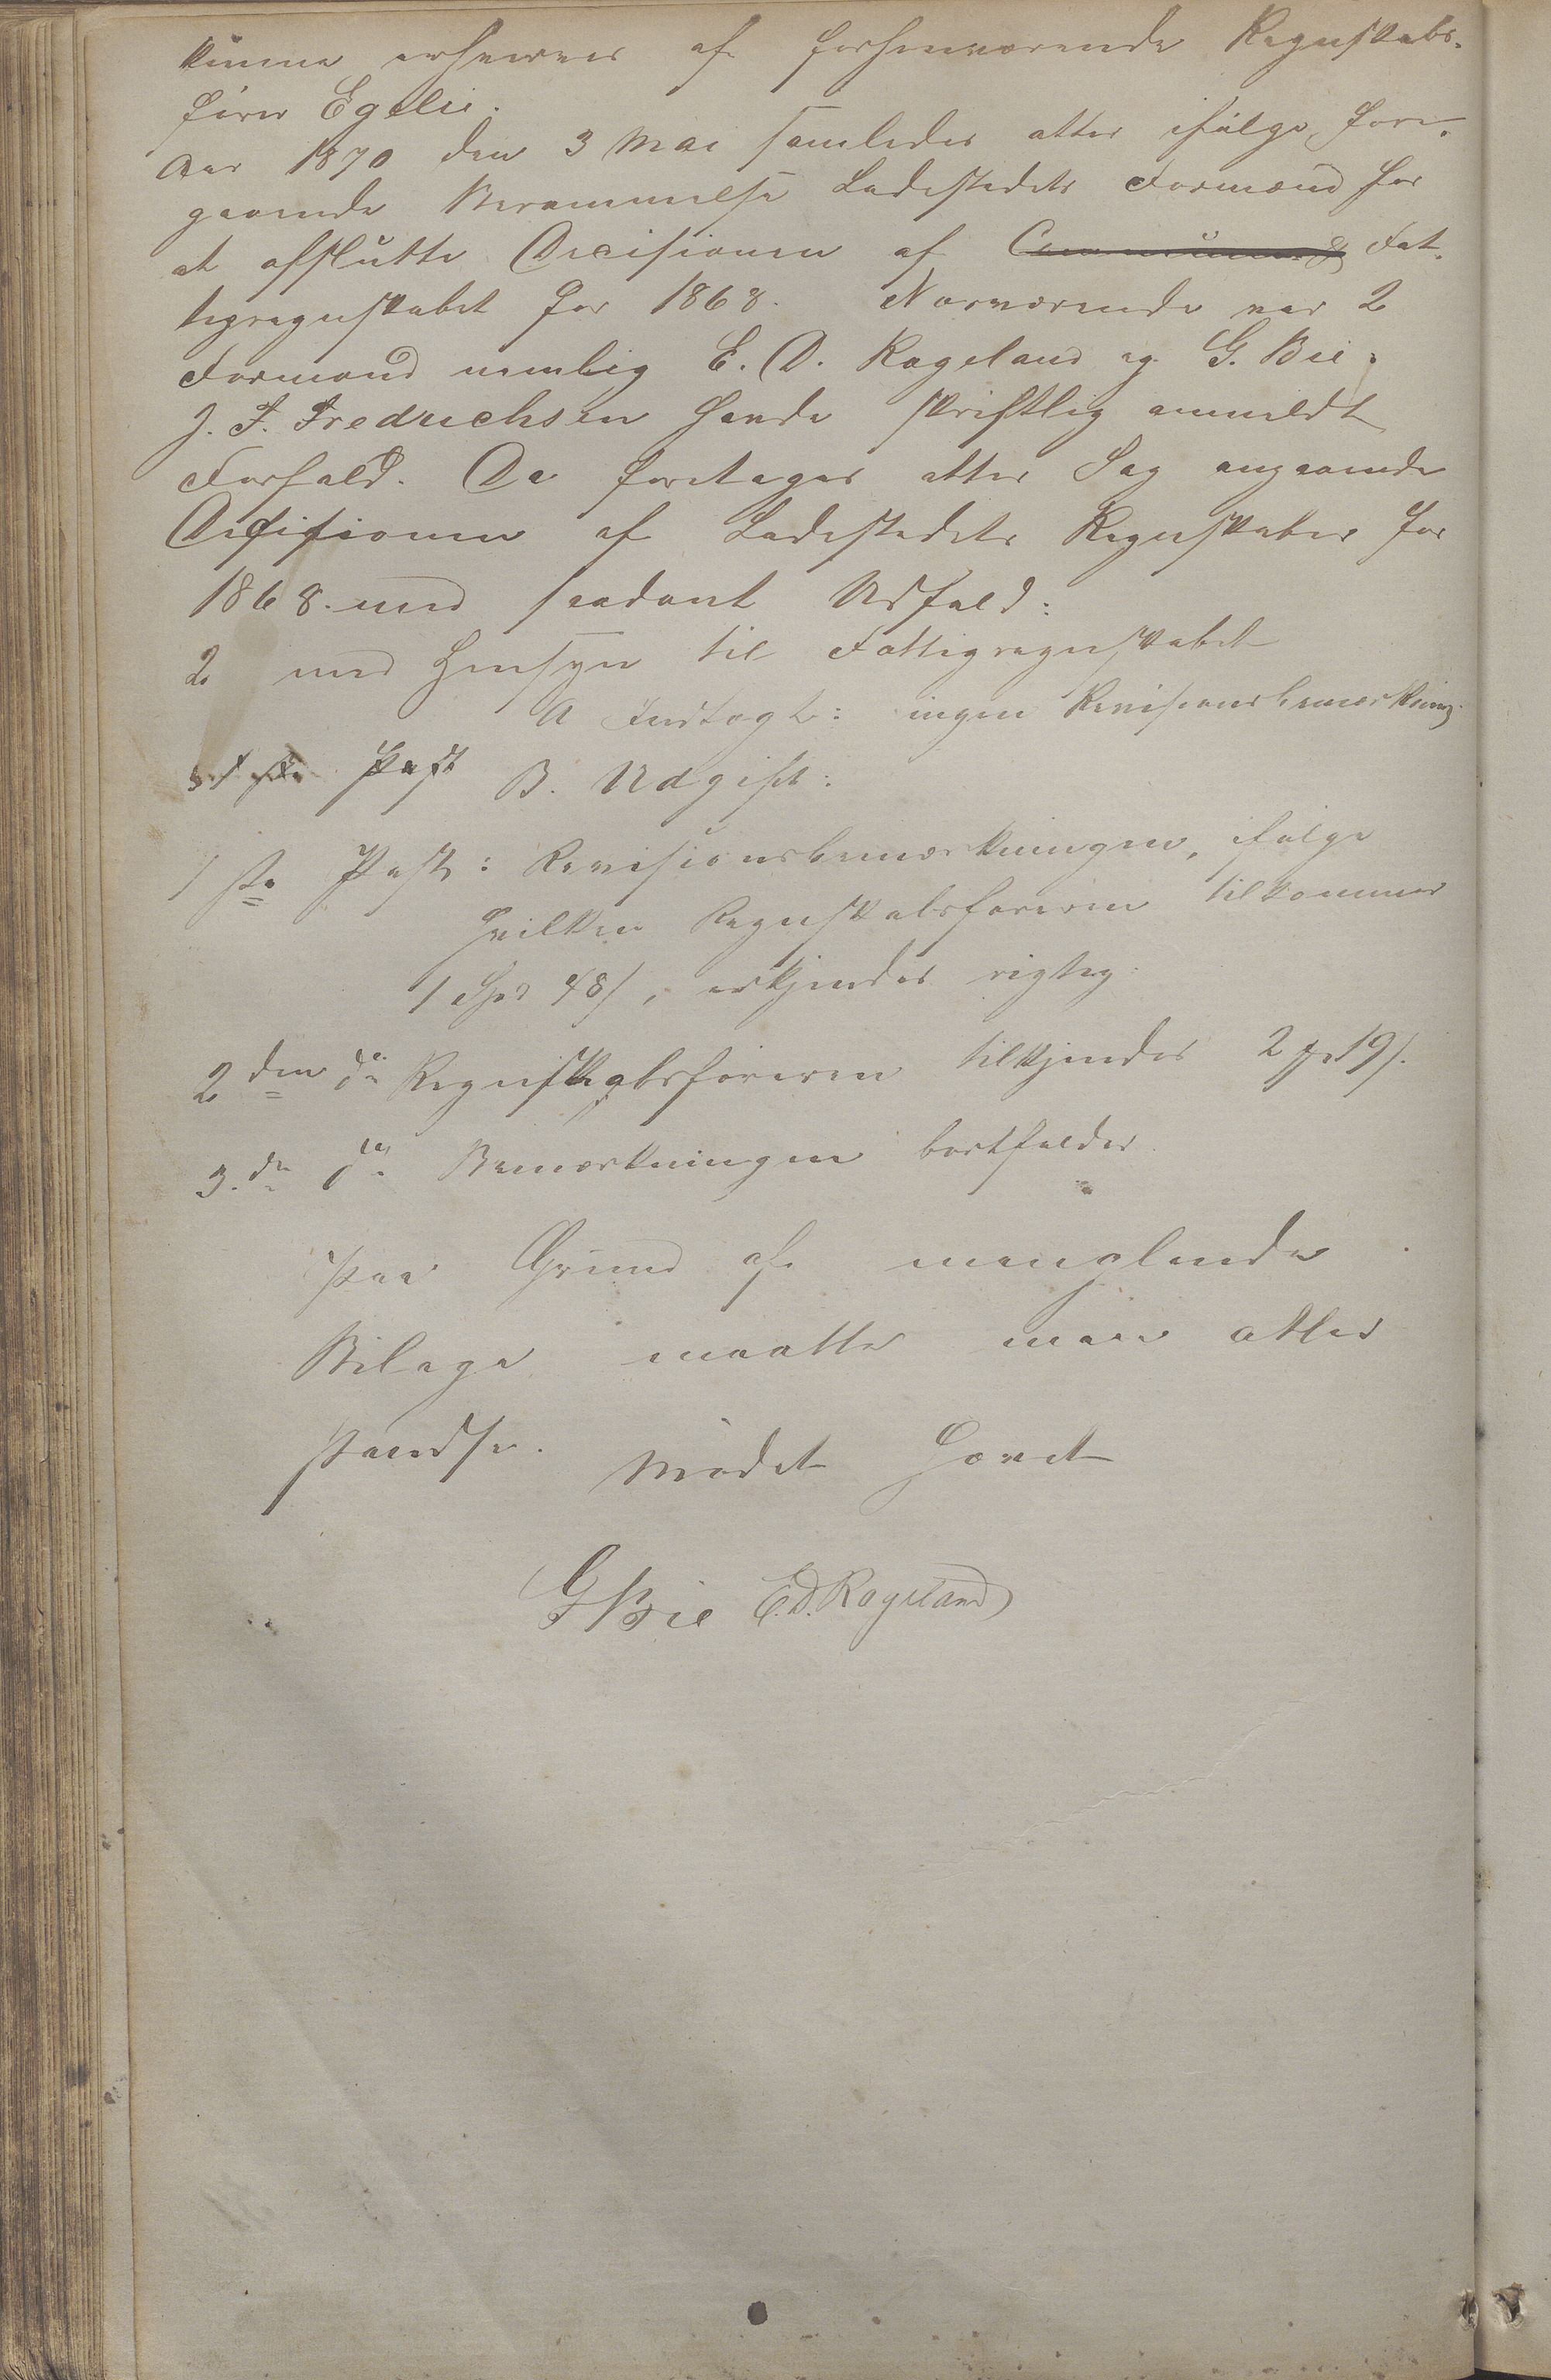 kunne erhverves af forhenværende Regnskabs-
fører Egelie.
Aar 1870 den 3 Mai samledes atter ifølge fore-
gaaende Berammelse Ladestedets Formænd for
at afslutte Decisionen af Communens Fat-
tigregnskabet for 1868. Nærværende var 2
Formænd nemlig E. D. Rageland og G. Bie.
J. F. Fredrichsen havde skriftlig anmeldt
Forfald. Da foretages atter Sag angaaende
Decisionen af Ladestedets Regnskaber for
1868. med saadant Udfald:
2 med Hensyn til Fattigregnskabet
A Indtægt: ingen Revisionsbemærkning.
Post B. Udgift:
1ste Post: Revisionsbemærkningen, ifølge
hvilken Regnskabsføreren tilkommer
1 Spd 48 s, erkjendes rigtig.
2den do Regnskabsføreren tilkjendes 2 19 s.
3die do Bemærkningen bortfalder.
Paa Grund af manglende
Bilage maatte man atter
standse. Mødet hævet
G Bie E. D. Rageland